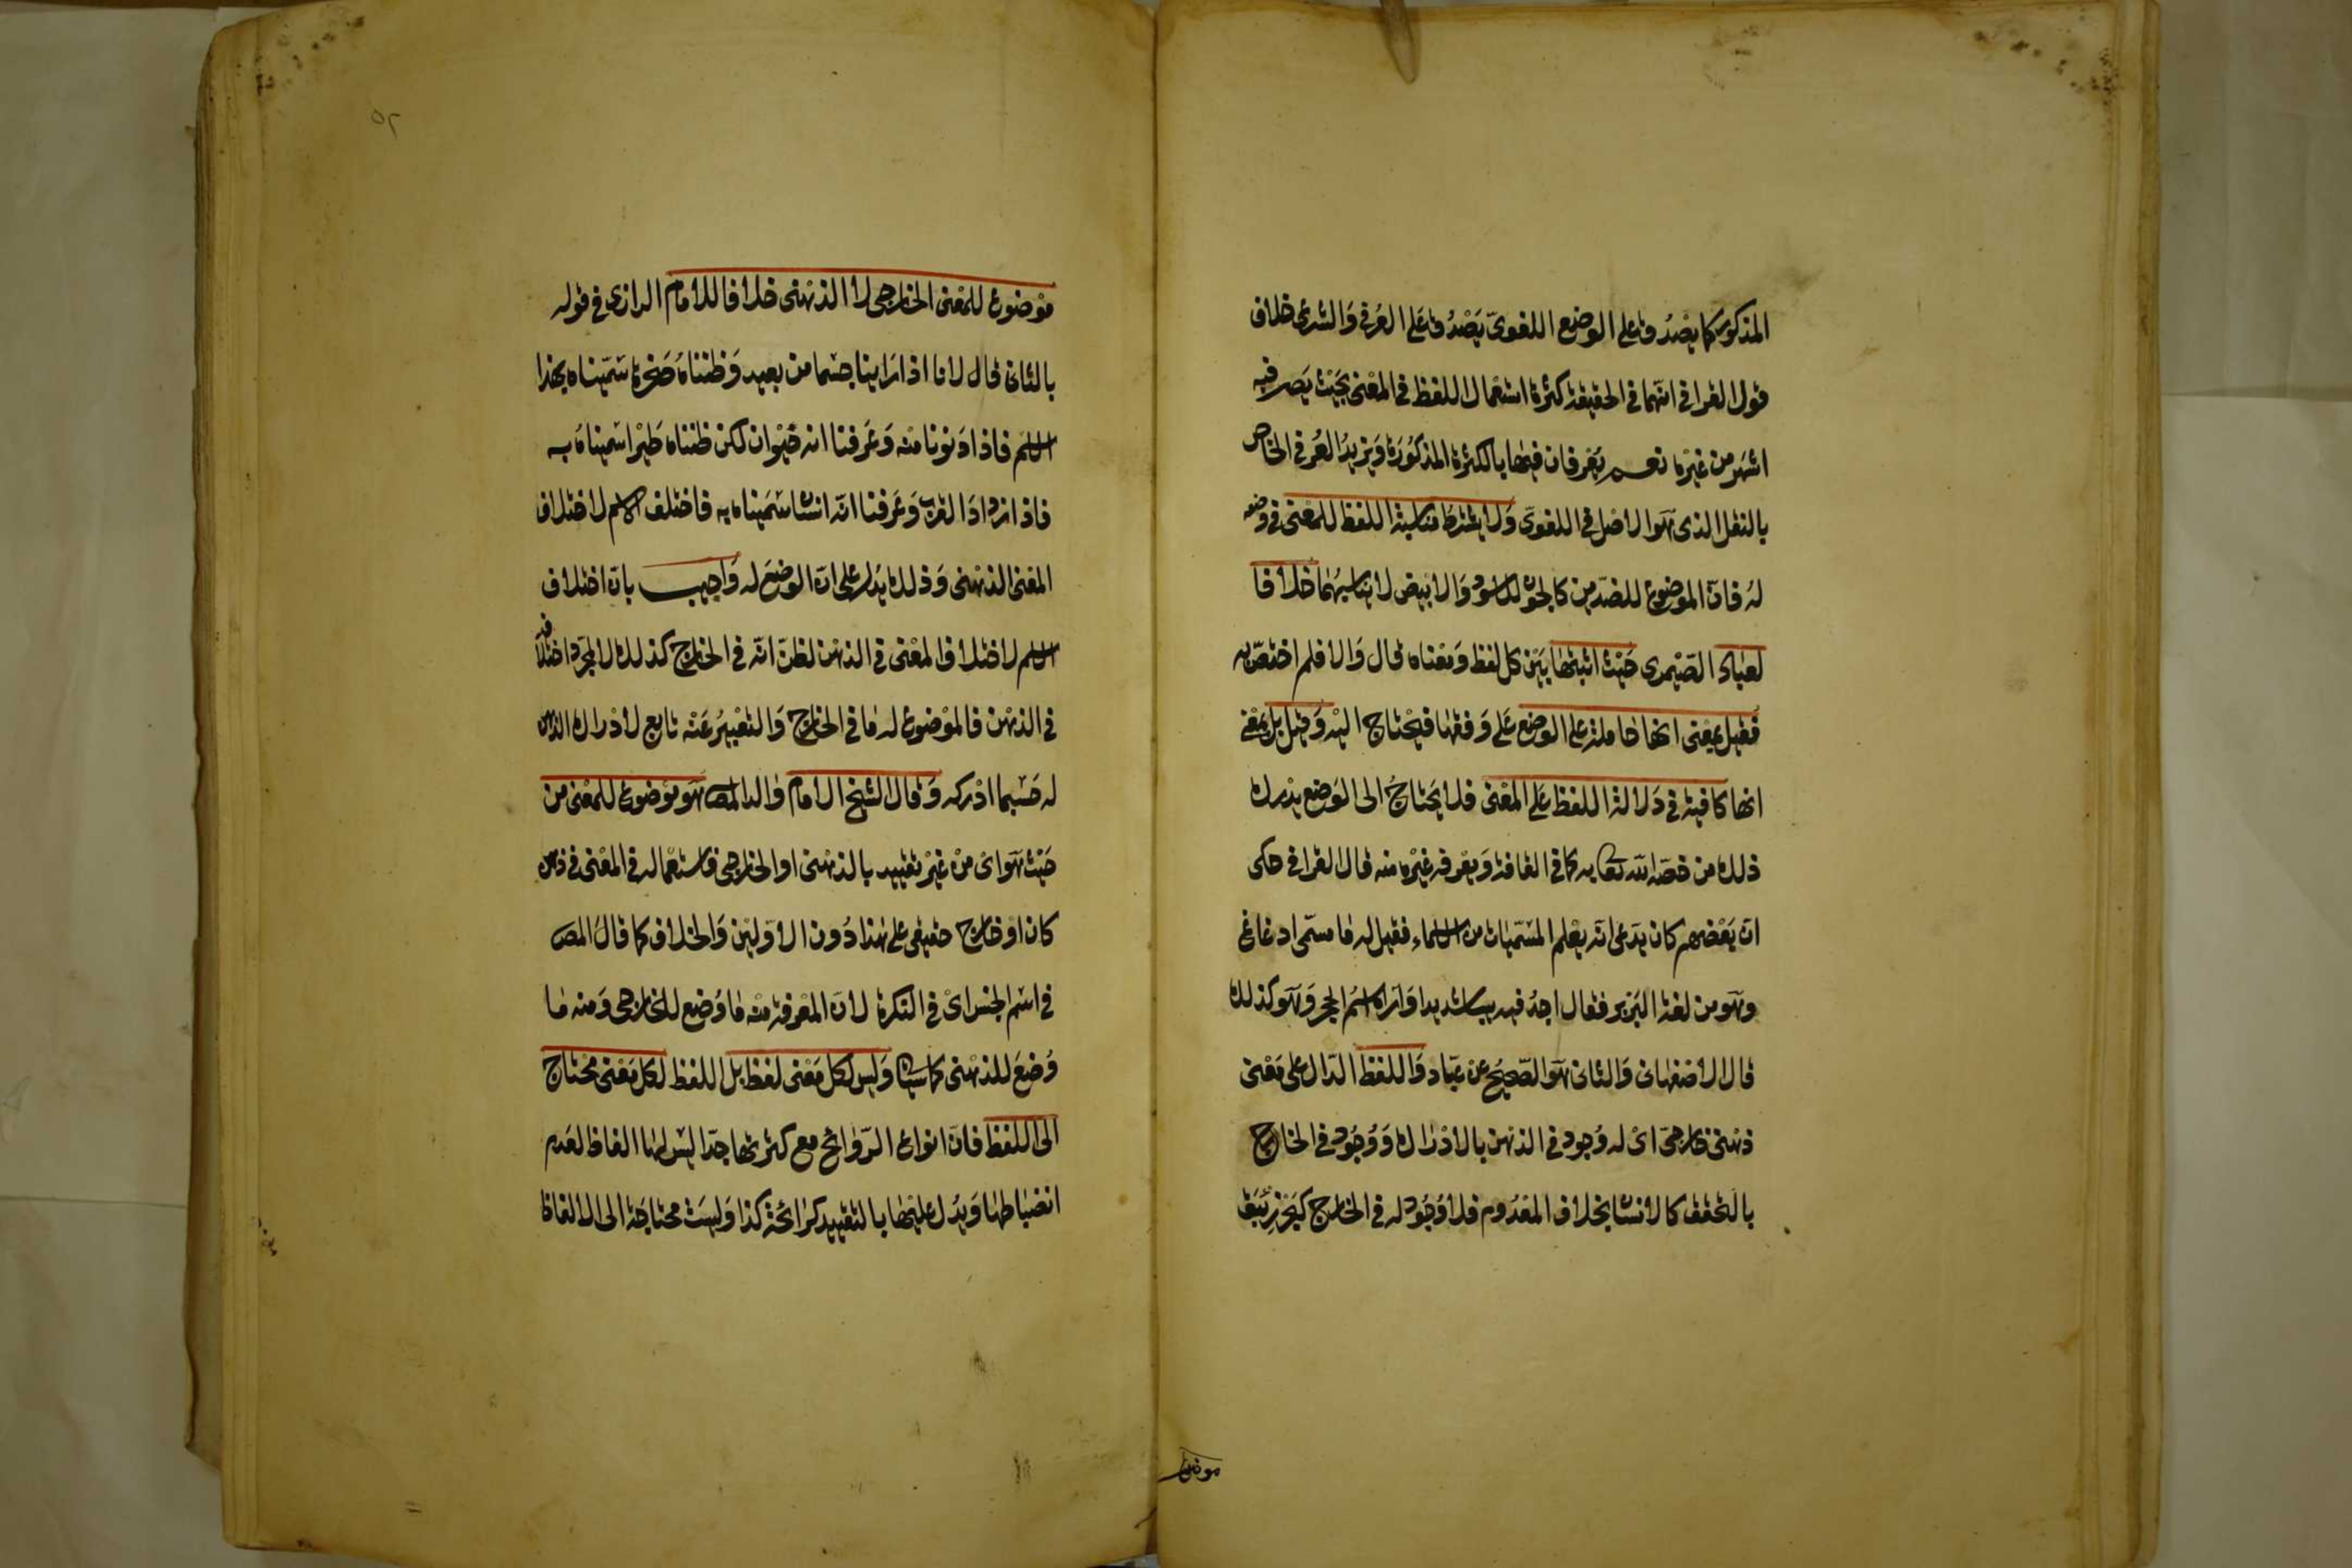 المذكور كما يصدق على الوضع اللغوي يصدق على العرفي والشرعي خلاف
قول القرافي انهما في الحقيقة كثرة استعمال اللفظ في المعنى بحيث يصير فيه
اشهر من غيره نعم يعرفان فيهما بالكثرة المذكورة ويزيد العرفي الخاص
بالنقل الذي هو الاصل في اللغوي ولا يشترط مناسبة اللفظ للمعنى في وضعه
له فان الموضوع للضدين كالجون للاسود والابيض لا يناسبهما خلافا
لعباد الصيمري حيث اثبتها بين كل لفظ ومعناه قال والا فلم اختص به
فقيل بمعنى انها حاملة على الوضع على وفقها فيحتاج اليه وقيل بل بمعنى
انها كافية في دلالة اللفظ على المعنى فلا يحتاج الى الوضع يدرك
ذلك من خصه الله تعا به كما في القافة ويعرفه غيره منه قال القرافي حكى
ان بعضهم كان يدعى انه يعلم المسميات من الاسماء فقيل له ما مسمى ادغاغ
وهو من لغة البربر فقال اجد فيه يبسا شديدا واراه اسم الحجر وهو كذلك
قال الاصفهاني والثاني هو الصحيح عن عباد واللفظ الدال على معنى
ذهني خارجي اي له وجود في الذهن بالادراك ووجود في الخارج
بالتحقق كالانسان بخلاف المعدوم فلا وجود له في الخارج كبحر زيبق
موضوع
٥٢
موضوع للمعنى الخارجي لا الذهني خلافا للامام الرازي في قوله
بالثاني قال لانا اذا راينا جسما من بعيد وظنناه صخرة سميناه بهذا
الاسم فاذا دنونا منه وعرفنا انه حيوان لكن ظنناه طيرا سميناه به
فاذا ازداد القرب وعرفنا انه انسان سميناه به فاختلف الاسم لاختلاف
المعنى الذهني وذلك يدل على ان الوضع له واجيب بان اختلاف
الاسم لاختلاف المعنى في الذهن لظن انه في الخارج كذلك لا لمجرد اختلافه
في الذهن فالموضوع له ما في الخارج والتعبير عنه تابع لادراك الذهن
له حسبما ادركه وقال الشيخ الامام والد المص هو موضوع للمعنى من
حيث هو اي من غير تقييد بالذهني او الخارجي فاستعماله في المعنى في ذهن
كان او خارج حقيقي على هذا دون الاولين والخلاف كما قال المص
في اسم الجنس اي في النكرة لان المعرفة منه ما وضع للخارجي ومنه ما
وضع للذهني كما سياتي وليس لكل معنى لفظ بل اللفظ لكل معنى محتاج
الى اللفظ فان انواع الروائح مع كثرتها جدا ليس لها الفاظ لعدم
انضباطها ويدل عليها بالتقييد كرائحة كذا وليست محتاجة الى الالفاظ